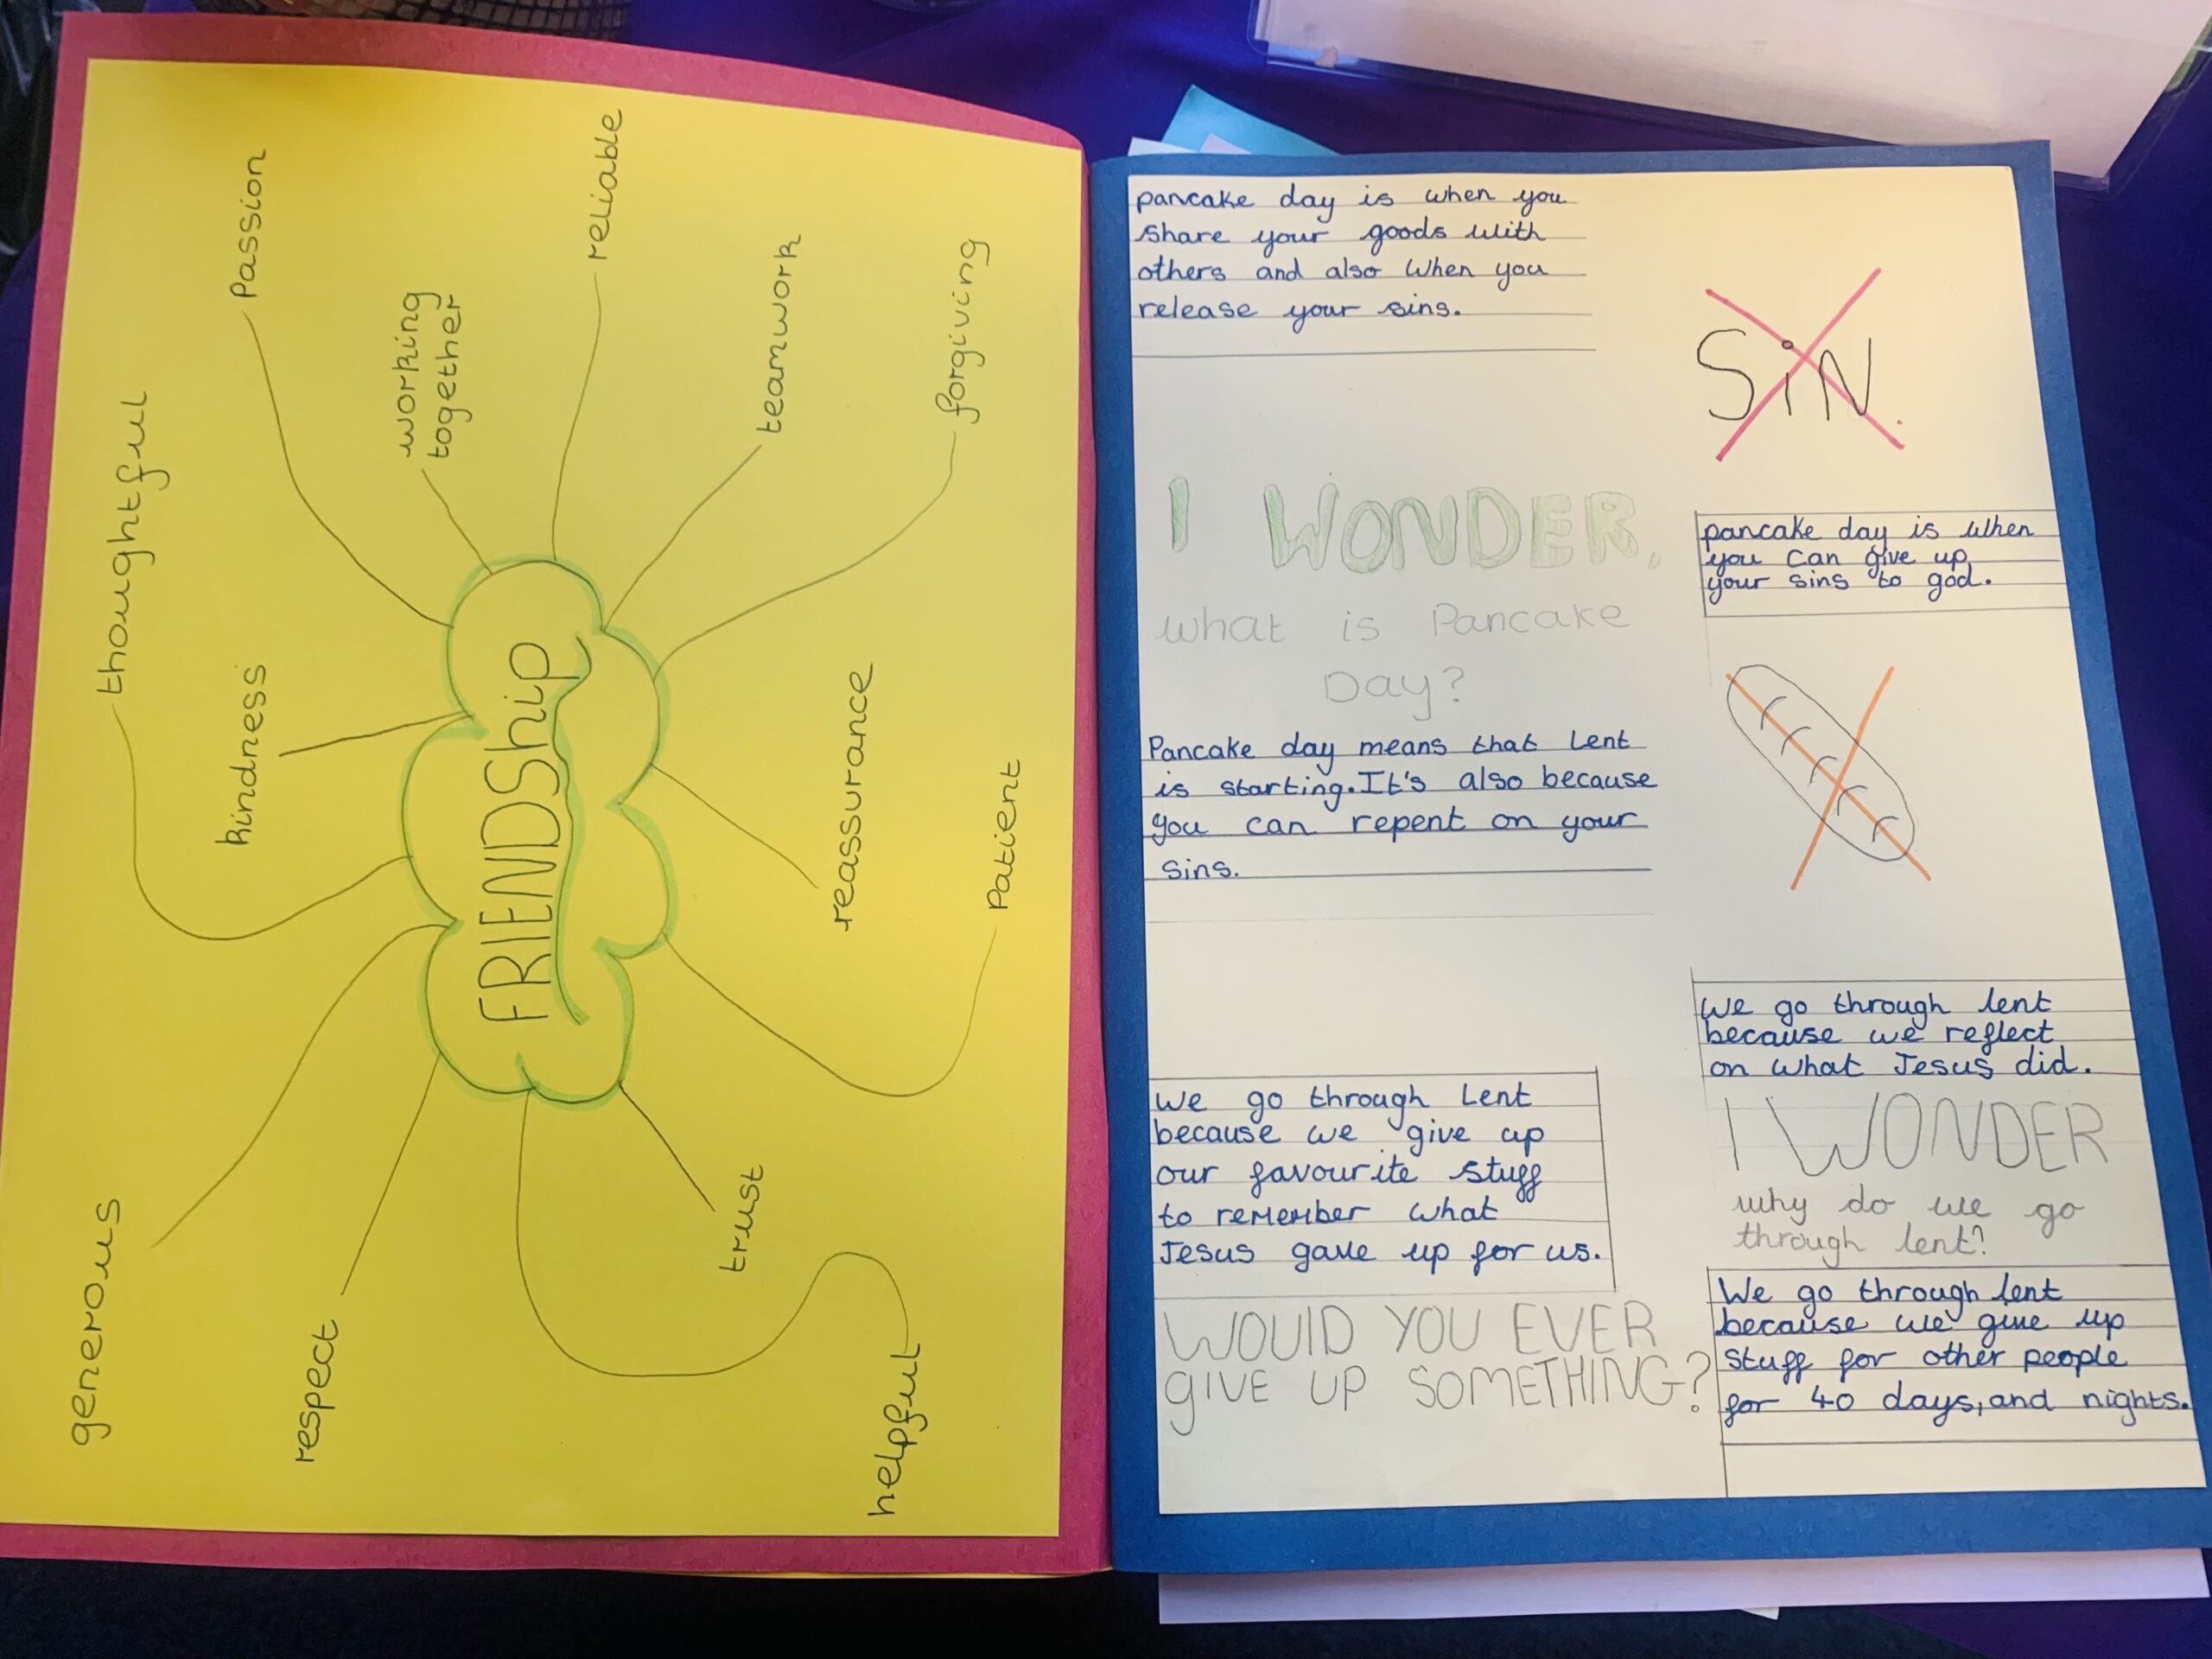 FRIENDShip
thoughtful
Passion
working
together
reliable
teamwork
forgiving
kindness
reassurance
Patient
generous
respect
trust
helpful
pancake day is when you
share your goods with
others and also when you
release your sins.
SiN.
I WONDER.
what is Pancake
Day?
pancake day is when
you can give up
your sins to god.
Pancake day means that Lent
is starting. It's also because
you can repent on your
sins.
We go through lent
because we reflect
on what Jesus did.
We go through Lent
because we give up
our favourite stuff
to remember what
Jesus gave up for us.
I WONDER
why do we go
through lent?
WOUlD YOU EVER
gIVE UP SOMETHING?
We go through lent
because we give up
stuff for other people
for 40 days, and nights.